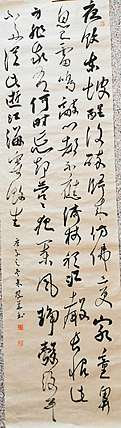 夜飲東坡醒復醉歸來仿佛三更家童鼻
息已雷鳴敲門都不應倚杖聽江聲長恨此
身非我有何時忘却營營夜闌風靜縠紋平
小舟從此逝江海寄餘生
庚子